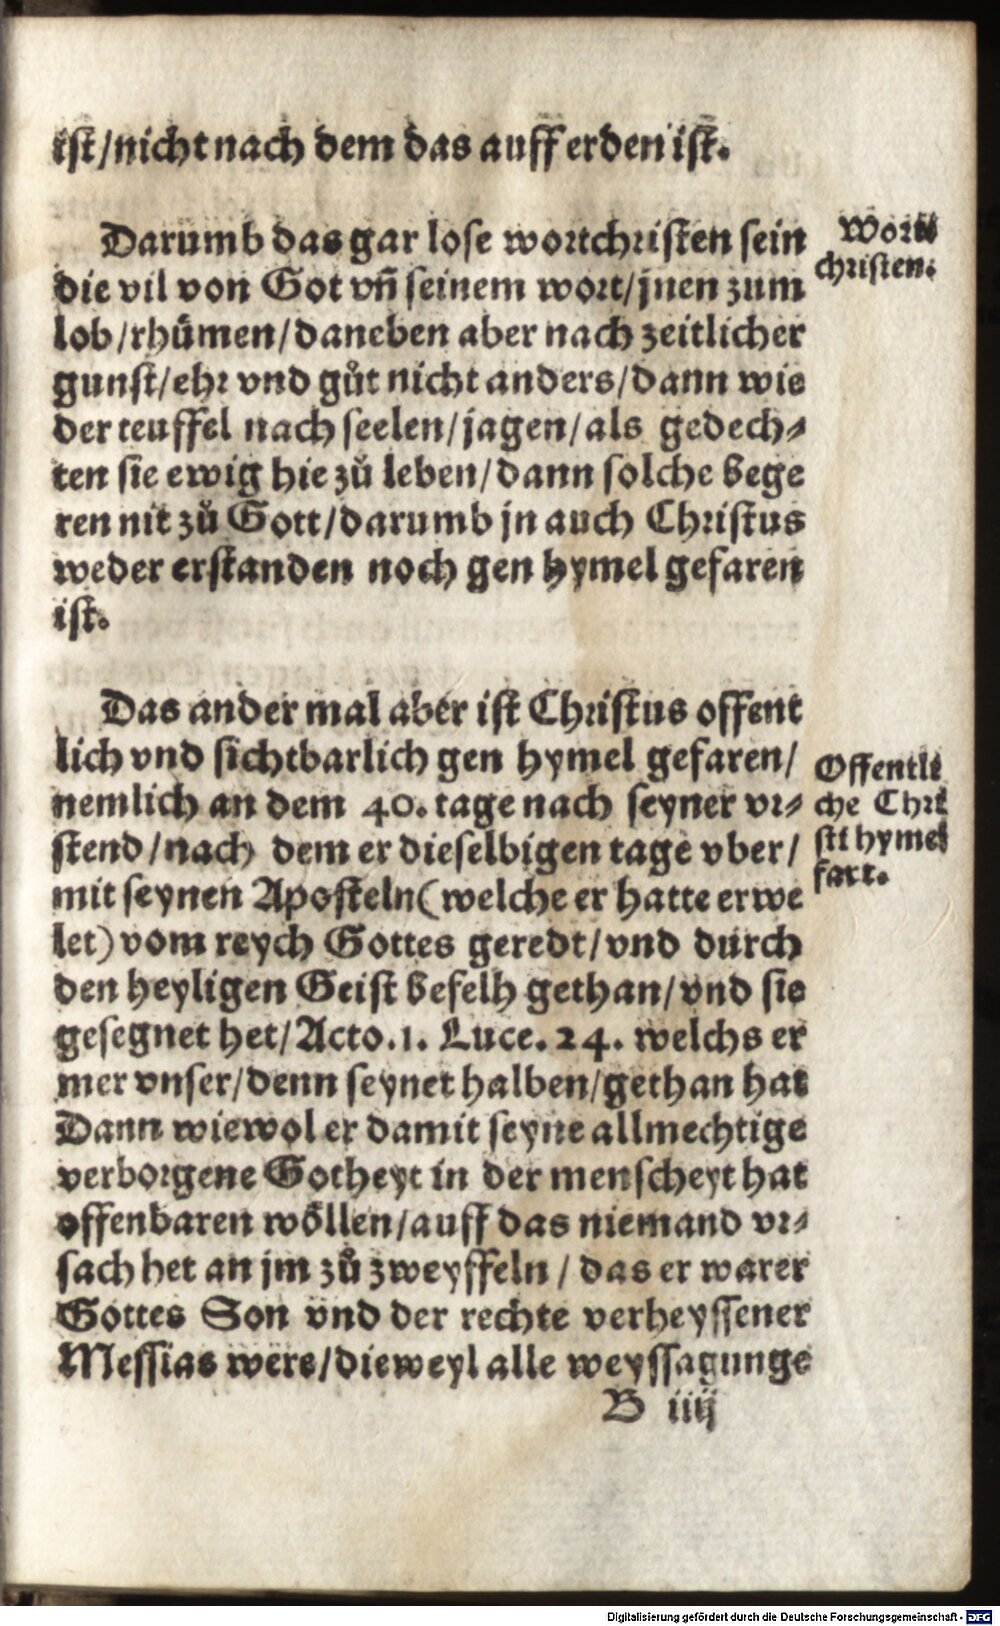 ist/nicht nach dem das auff erden ist.
Darumb das gar lose wortchristen sein
die vil von Got vn̄ seinem wort/jnen zum
lob/rhuͤmen/daneben aber nach zeitlicher
gunst/ehr vnd guͦt nicht anders/dann wie
der teuffel nach seelen/jagen/als gedech-
ten sie ewig hie zuͦ leben/dann solche bege
ren nit zuͦ Gott/darumb jn auch Christus
weder erstanden noch gen hymel gefaren
ist.
Wort
christen.
Das ander mal aber ist Christus offent
lich vnd sichtbarlich gen hymel gefaren/
nemlich an dem 40. tage nach seyner vr-
stend/nach dem er dieselbigen tage vber/
mit seynen Aposteln(welche er hatte erwe
let) vom reych Gottes geredt/vnd durch
den heyligen Geist befelh gethan/vnd sie
gesegnet het/Acto.1. Luce.24. welchs er
mer vnser/denn seynet halben/gethan hat
Dann wiewol er damit seyne allmechtige
verborgene Gotheyt in der menscheyt hat
offenbaren woͤllen/auff das niemand vr-
sach het an jm zuͦ zweyffeln/das er warer
Gottes Son vnd der rechte verheyssener
Messias were/dieweyl alle weyssagunge
Offentli
che Chri
sti hymel
fart.
B iiij
Digitalisierung gefördert durch die Deutsche Forschungsgemeinschaft - DFG